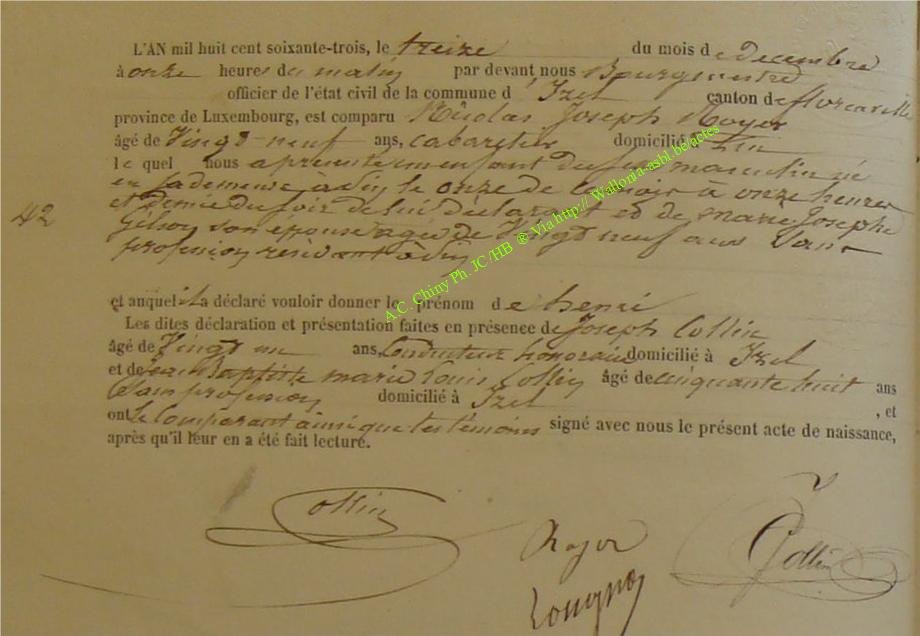 L'AN mil huit cent soixante-trois, le treize du mois de decembre
à onze heures du matin par devant nous Bourgmestre
officier de l'état civil de la commune d'Izel canton de florenville
province de Luxembourg, est comparu Nicolas Joseph Royer
âgé de Vingt neuf ans, cabaretier domicilié
le quel nous a présenté un enfant du sexe masculin né
en sa demeure à le onze de ce mois à onze heures
et demie du soir de lui déclarant et de marie Joseph
42
Gilson son épouse agée de Vingt neuf ans sans
profession résidant à
et auquel il a déclaré vouloir donner le prénom de henri
Les dites déclaration et présentation faites en présence de Joseph Collin
âgé de Vingt un ans, Conducteur honoraire domicilié à Izel
et de jean Baptiste marie louis Collin âgé de cinquante huit ans
Sans profession domicilié à Izel , et
ont le Comparant ainsi que les témoins signé avec nous le présent acte de naissance,
après qu'il leur en a été fait lecture.
A.C. Chiny Ph. JC/HB ® Via http:// Wallonia-asbl.be/actes
Collin
Royer
Collin